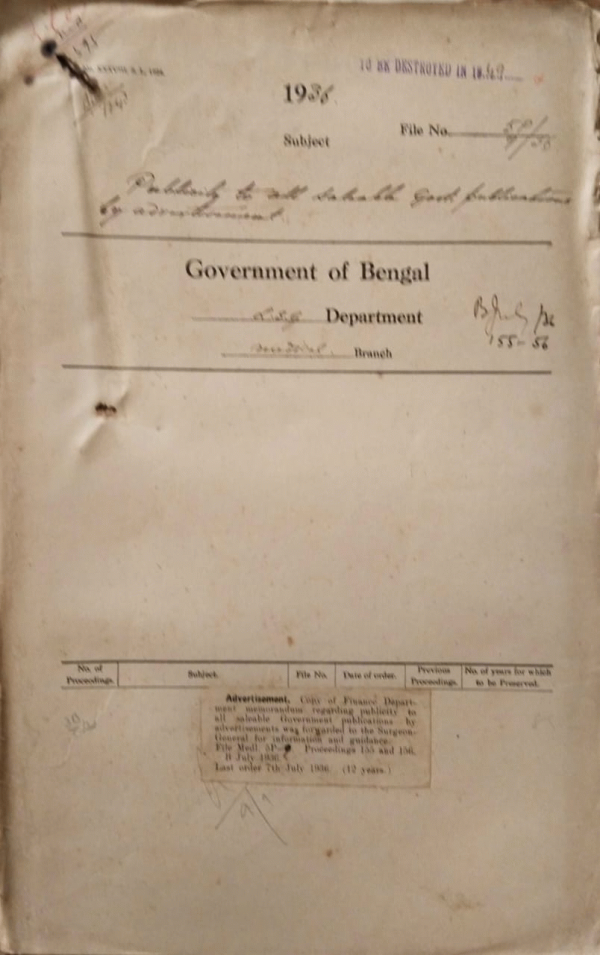 TO BE DESTROYED IN 1949
1936
File No. 5P/
9/36
Subject
Publicity to all saleable Govt publications
by advertisement
Government of Bengal
L.S.G Department
Medical Branch
B July /36
155-56
No. of Proceedings.
Subject.
File No.
Date of order.
Previous Proceedings.
No. of years for which to be Preserved.
Advertisement. Copy of Finance Depart-
ment memorandum regarding publicity to
all saleable Government publications by
advertisements was forwarded to the Surgeon-
General for information and guidance.
File Medl. 5P- Proceedings 155 and 156,
B July 1936.
Last order 7th July 1936. (12 years.)